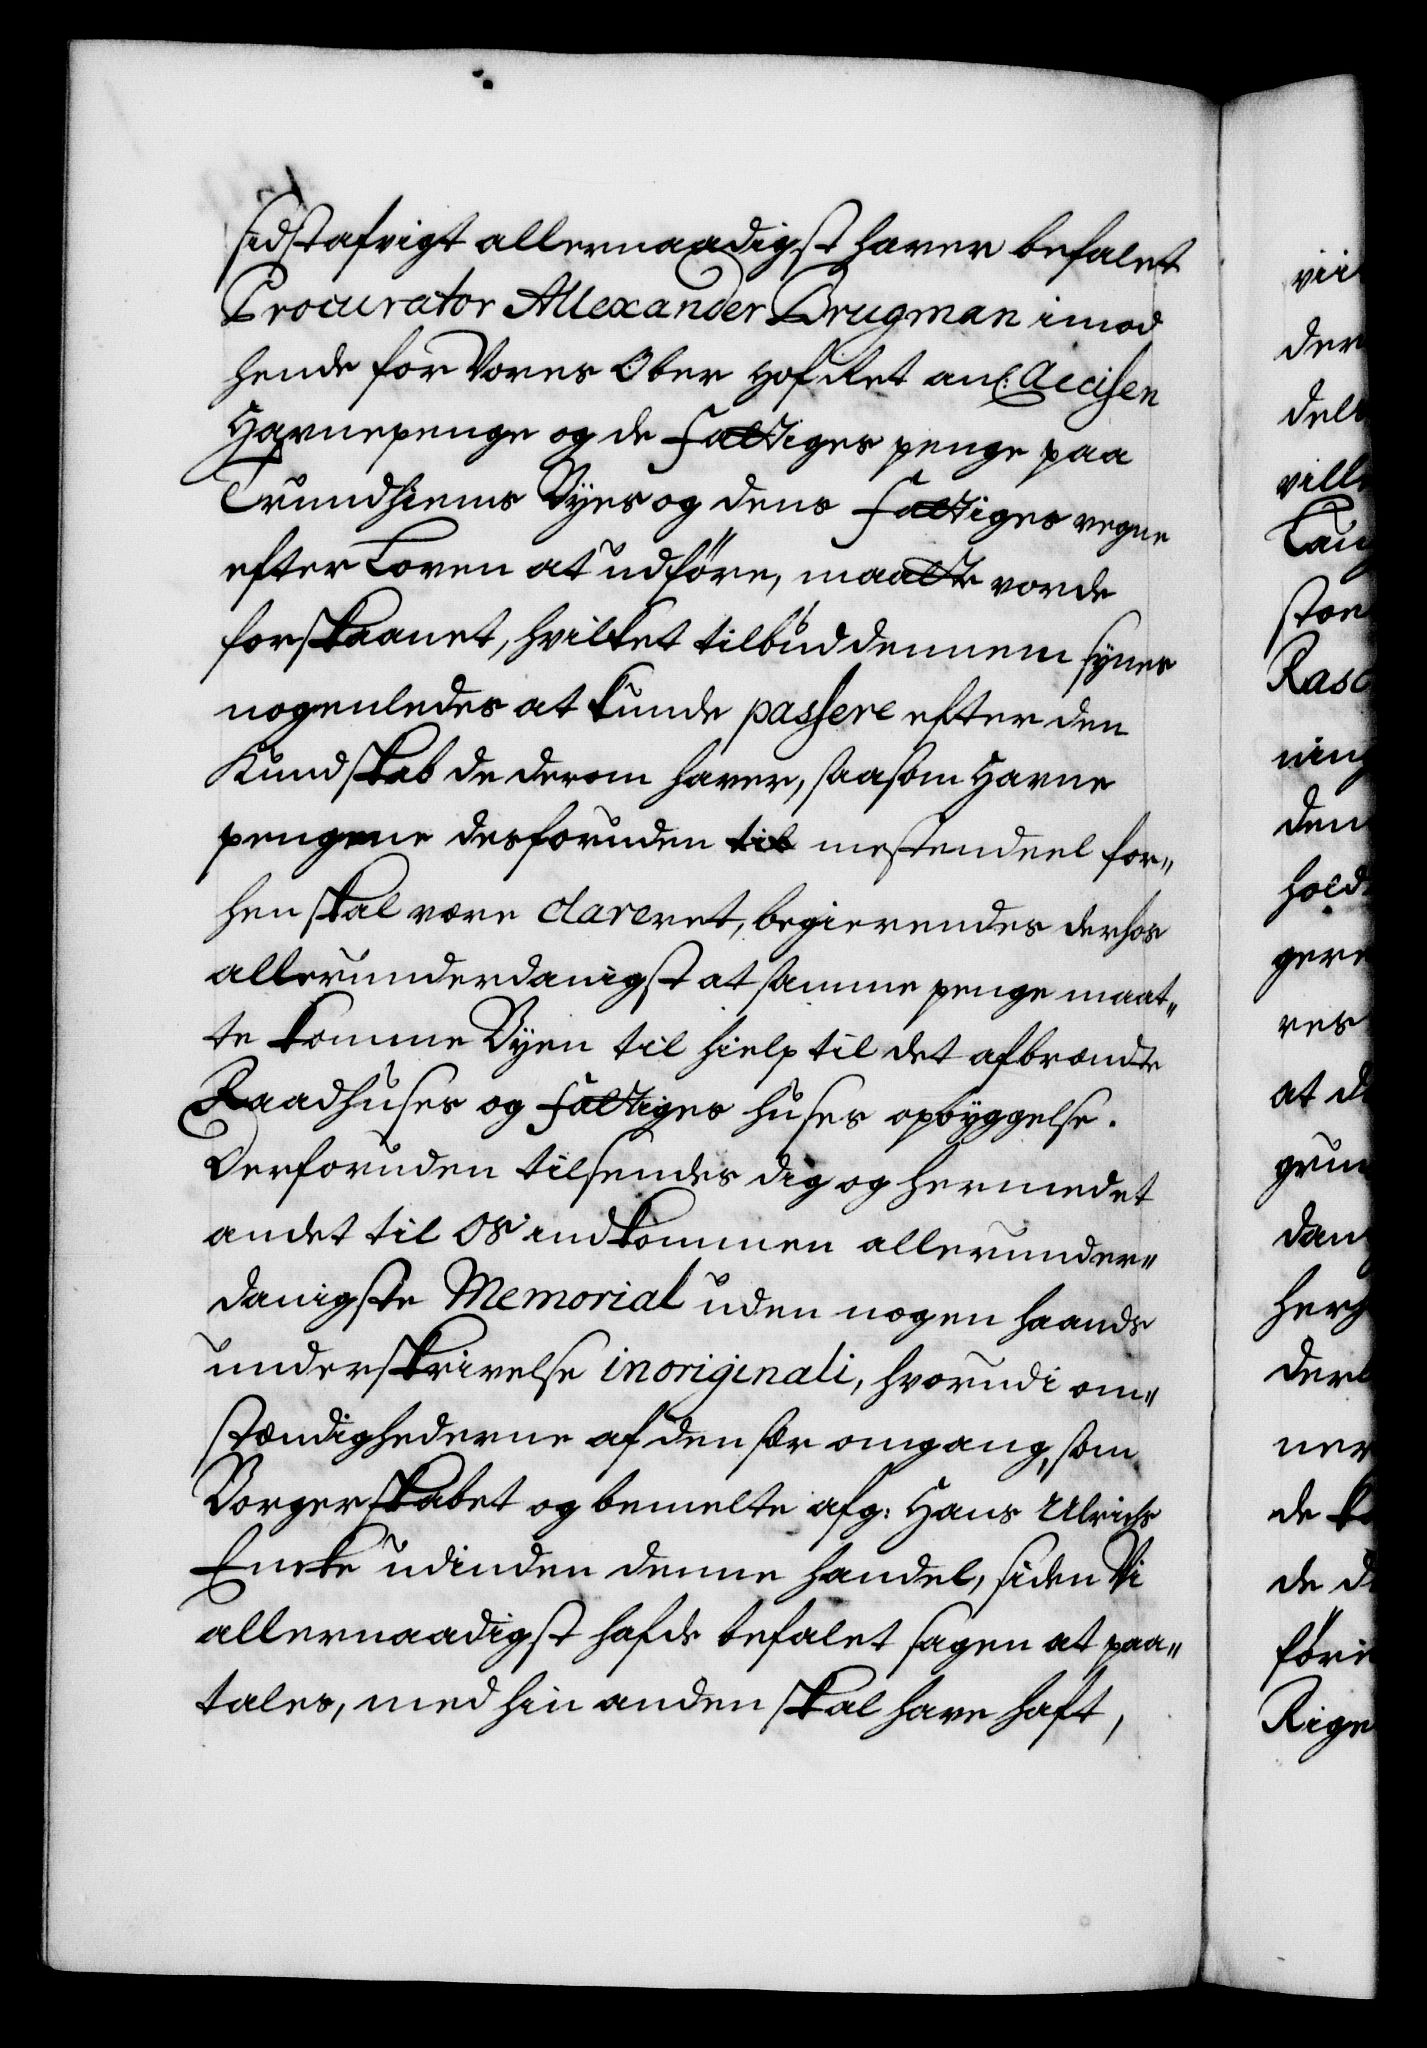 sidstafvigt allernaadigst haver befalet
Procurator Allexander Brugman imod
hende for Vores Ober Hof Ret anl: Accisen
Havnepenge og de fattiges penge paa
Trundhiems Byes og dens fattiges vegne
efter Loven at udföre, maatte vorde
forskaanet, hvilket tilbud dennem synes
nogenledes at kunde passere efter den
Kundskab de derom haver, saasom Havne
pengene desforuden til mestendeel for„
hen skal være clareret, begierendes derhos
allerunderdanigst at samme penge maat„
te komme Byen til hielp til det afbrændte
Raadhuses og fattiges huses opbyggelse.
Derforuden tilsendes dig og hermed et
andet til Os indkommen allerunder„
danigste Memorial uden nogen haands
underskrivelse in originali, hvorudi om„
stændighederne af den sær omgang, som
Borgerskabet og bemelte afg: Hans Ulrichs
Encke udinden denne handel, siden Vi
allernaadigst hafde befalet sagen at paa„
tales, med hin anden skal have haft,